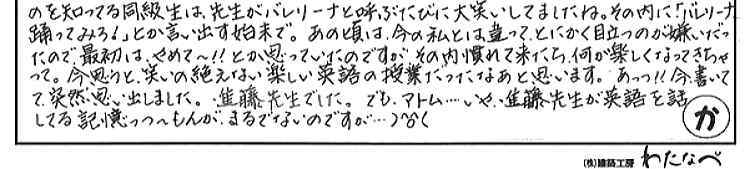 のを知ってる同級生は、先生がバレリーナと呼ぶたびに大笑いしてましたね。その内に「バレリーナ
踊ってみろ!」とか言い出す始末で。あの頃は、今の私とは違って、とにかく目立つのが嫌いだっ
たので、最初は、やめて〜!!とか思っていたのですが、その内慣れて来たら、何か楽しくなってきちゃ
って。今思うと、笑いの絶えない楽しい英語の授業だったなあと思います。あっっ!!今書いて
て、突然思い出しました。進藤先生でした。でも、アトム…いや、進藤先生が英語を話
してる記憶っつ〜もんが、まるでないのですが…)^o^(
か
(株)建築工房 わたなべ